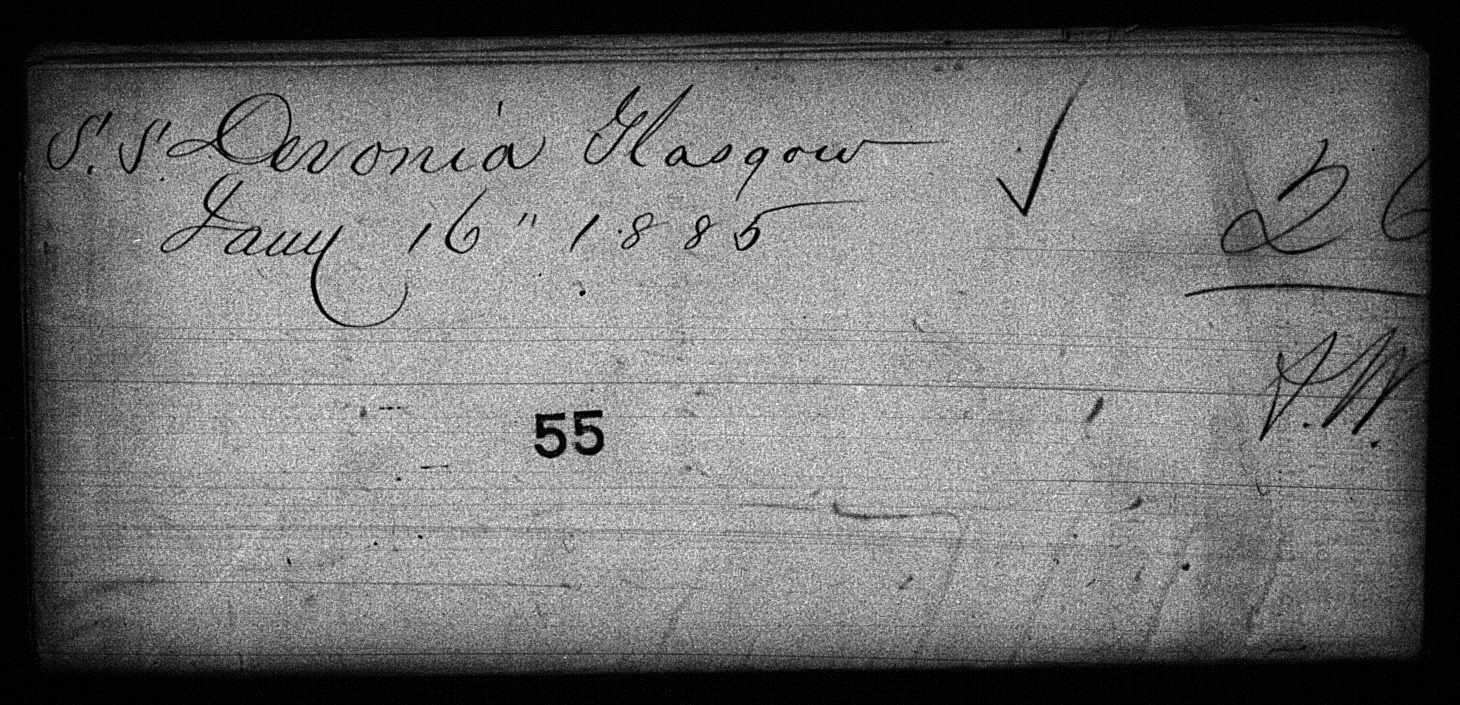 S.S. Devonia Glasgow ✓
Jany 16" 1885
26
J.W.
55